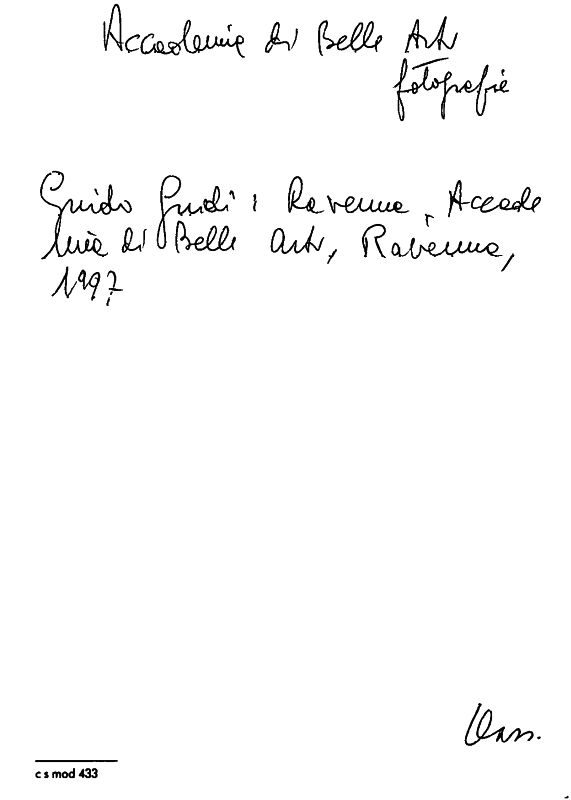 Accademia di Belle Arti
fotografie
Guido Guidi: Ravenna, Accade
mia di Belle Arti, Ravenna,
1997
c s mod 433